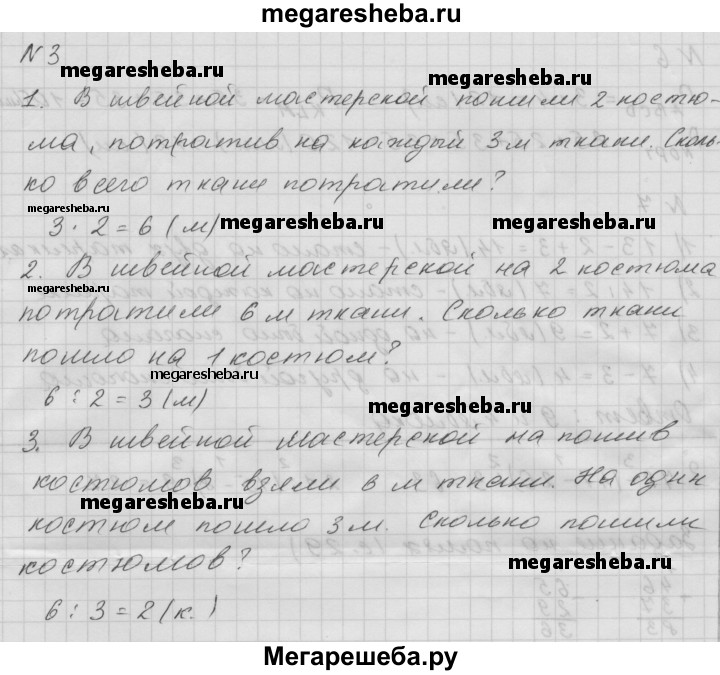 megaresheba.ru
N 3
megaresheba.ru
megaresheba.ru
1. В швейной мастерской пошили 2 костю-
ма, потратив на каждый 3 м ткани. Сколь-
ко всего ткани потратили?
megaresheba.ru
3 · 2 = 6 (м)
megaresheba.ru
megaresheba.ru
2. В швейной мастерской на 2 костюма
megaresheba.ru
потратили 6 м ткани. Сколько ткани
пошло на 1 костюм?
megaresheba.ru
6 : 2 = 3 (м)
megaresheba.ru
3. В швейной мастерской на пошив
костюмов взяли 6 м ткани. На один
megaresheba.ru
костюм пошло 3 м. Сколько пошили
костюмов?
megaresheba.ru
6 : 3 = 2 (к.)
Мегарешеба.ру